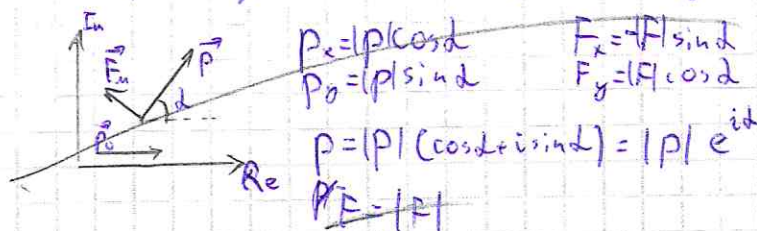 Im
F⃗м p⃗
α
p⃗₀
Re
pₓ=|p|cosα Fₓ=-|F|sinα
p_y=|p|sinα F_y=|F|cosα
p=|p|(cosα+isinα)=|p| e^{iα}
F=|F|